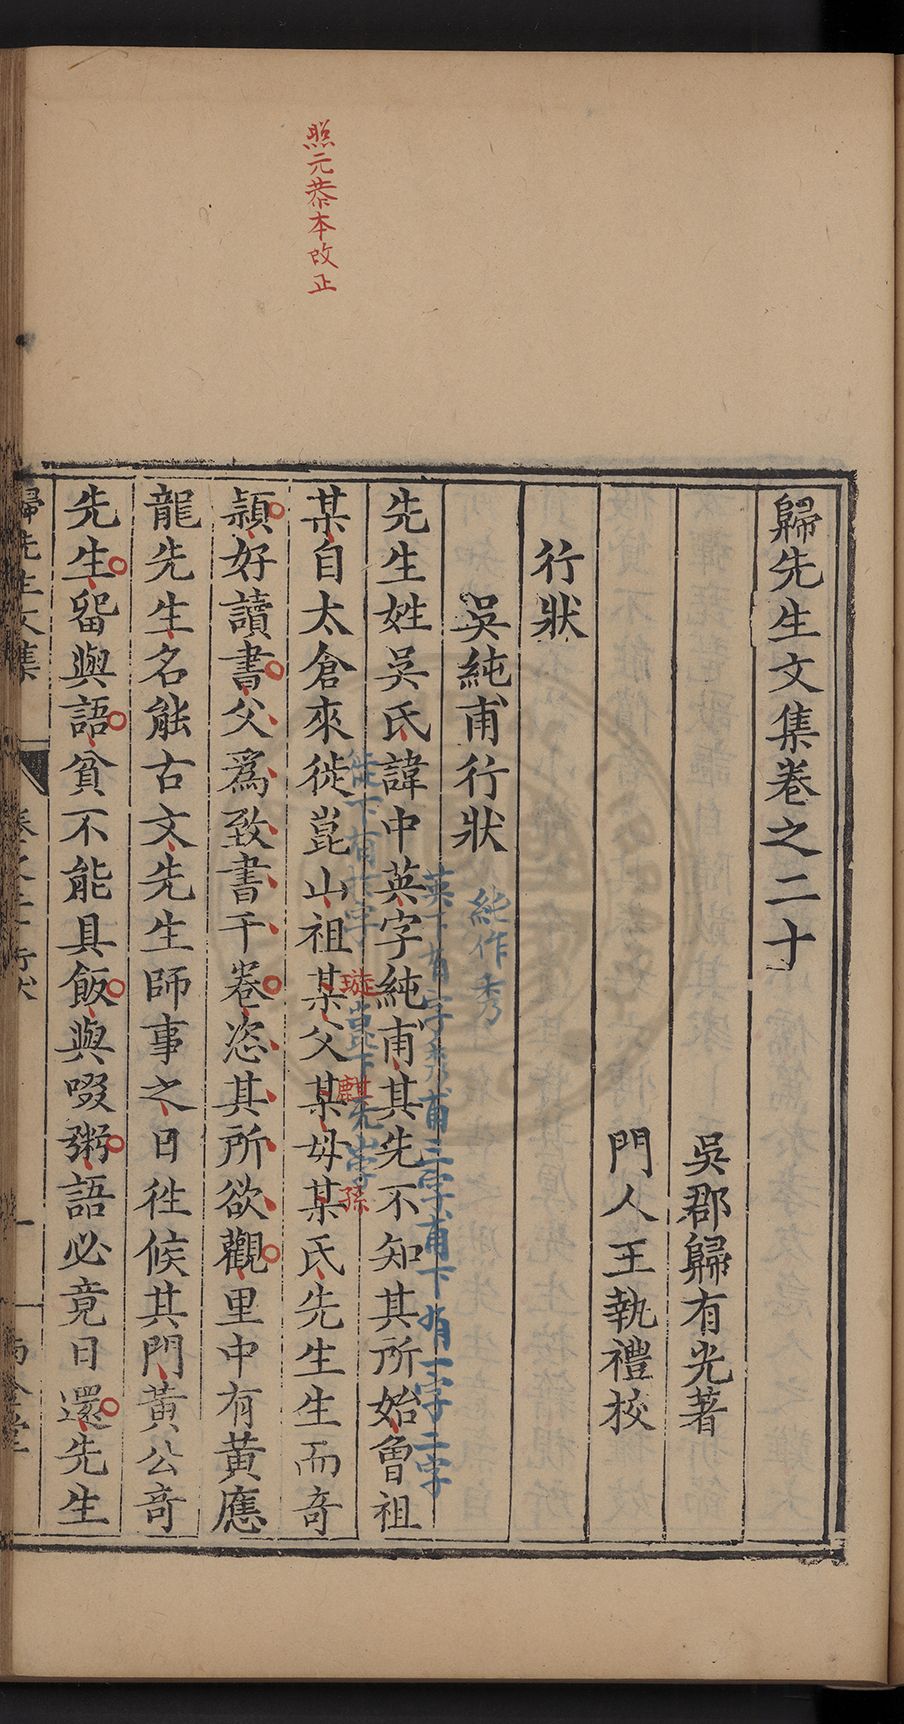 歸先生文集卷之二十
吳郡歸有光著
門人王執禮校
行狀
吳純甫行狀
純作秀
先生姓吳氏諱中英字純甫其先不知其所始曾祖
某自太倉來徙崑山祖某父某母某氏先生生而奇
璇
麒
孫
穎好讀書父爲致書千卷恣其所欲觀里中有黃應
龍先生名能古文先生師事之日徃候其門黃公奇
先生畱與語貧不能具飯與啜粥語必竟日還先生
照元恭本改正